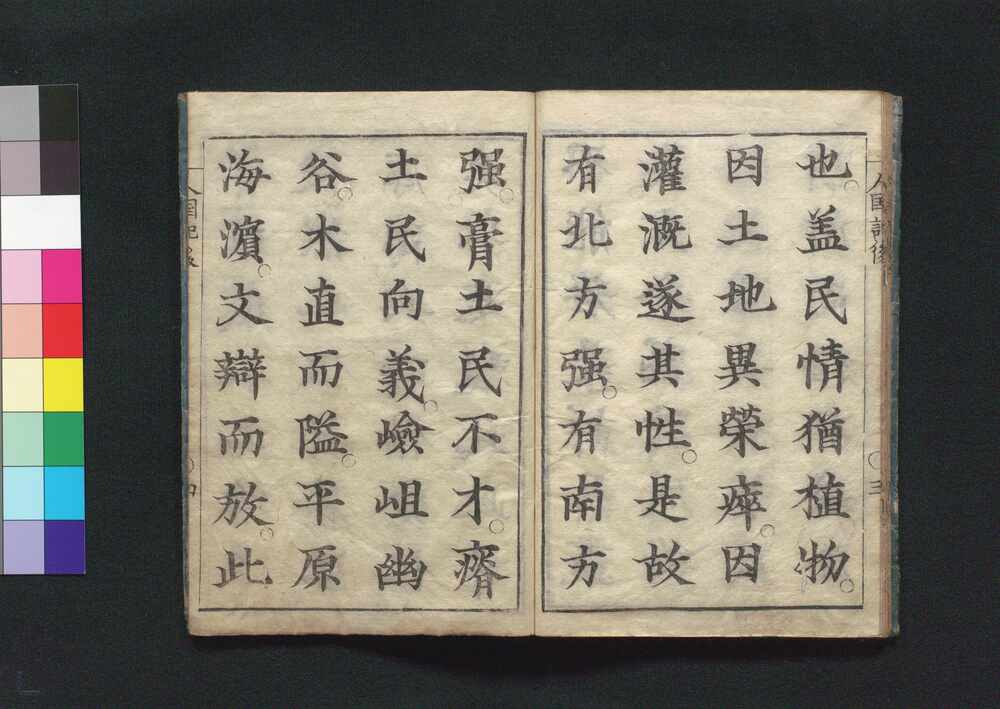 也。盖民情猶植物。
因土地異榮瘁。因
灌漑遂其性。是故
有北方强。有南方
强。膏土民不才。瘠
土民向義。嶮岨幽
谷。木直而隘。平原
海濵。文辯而放。此
人國記後
三